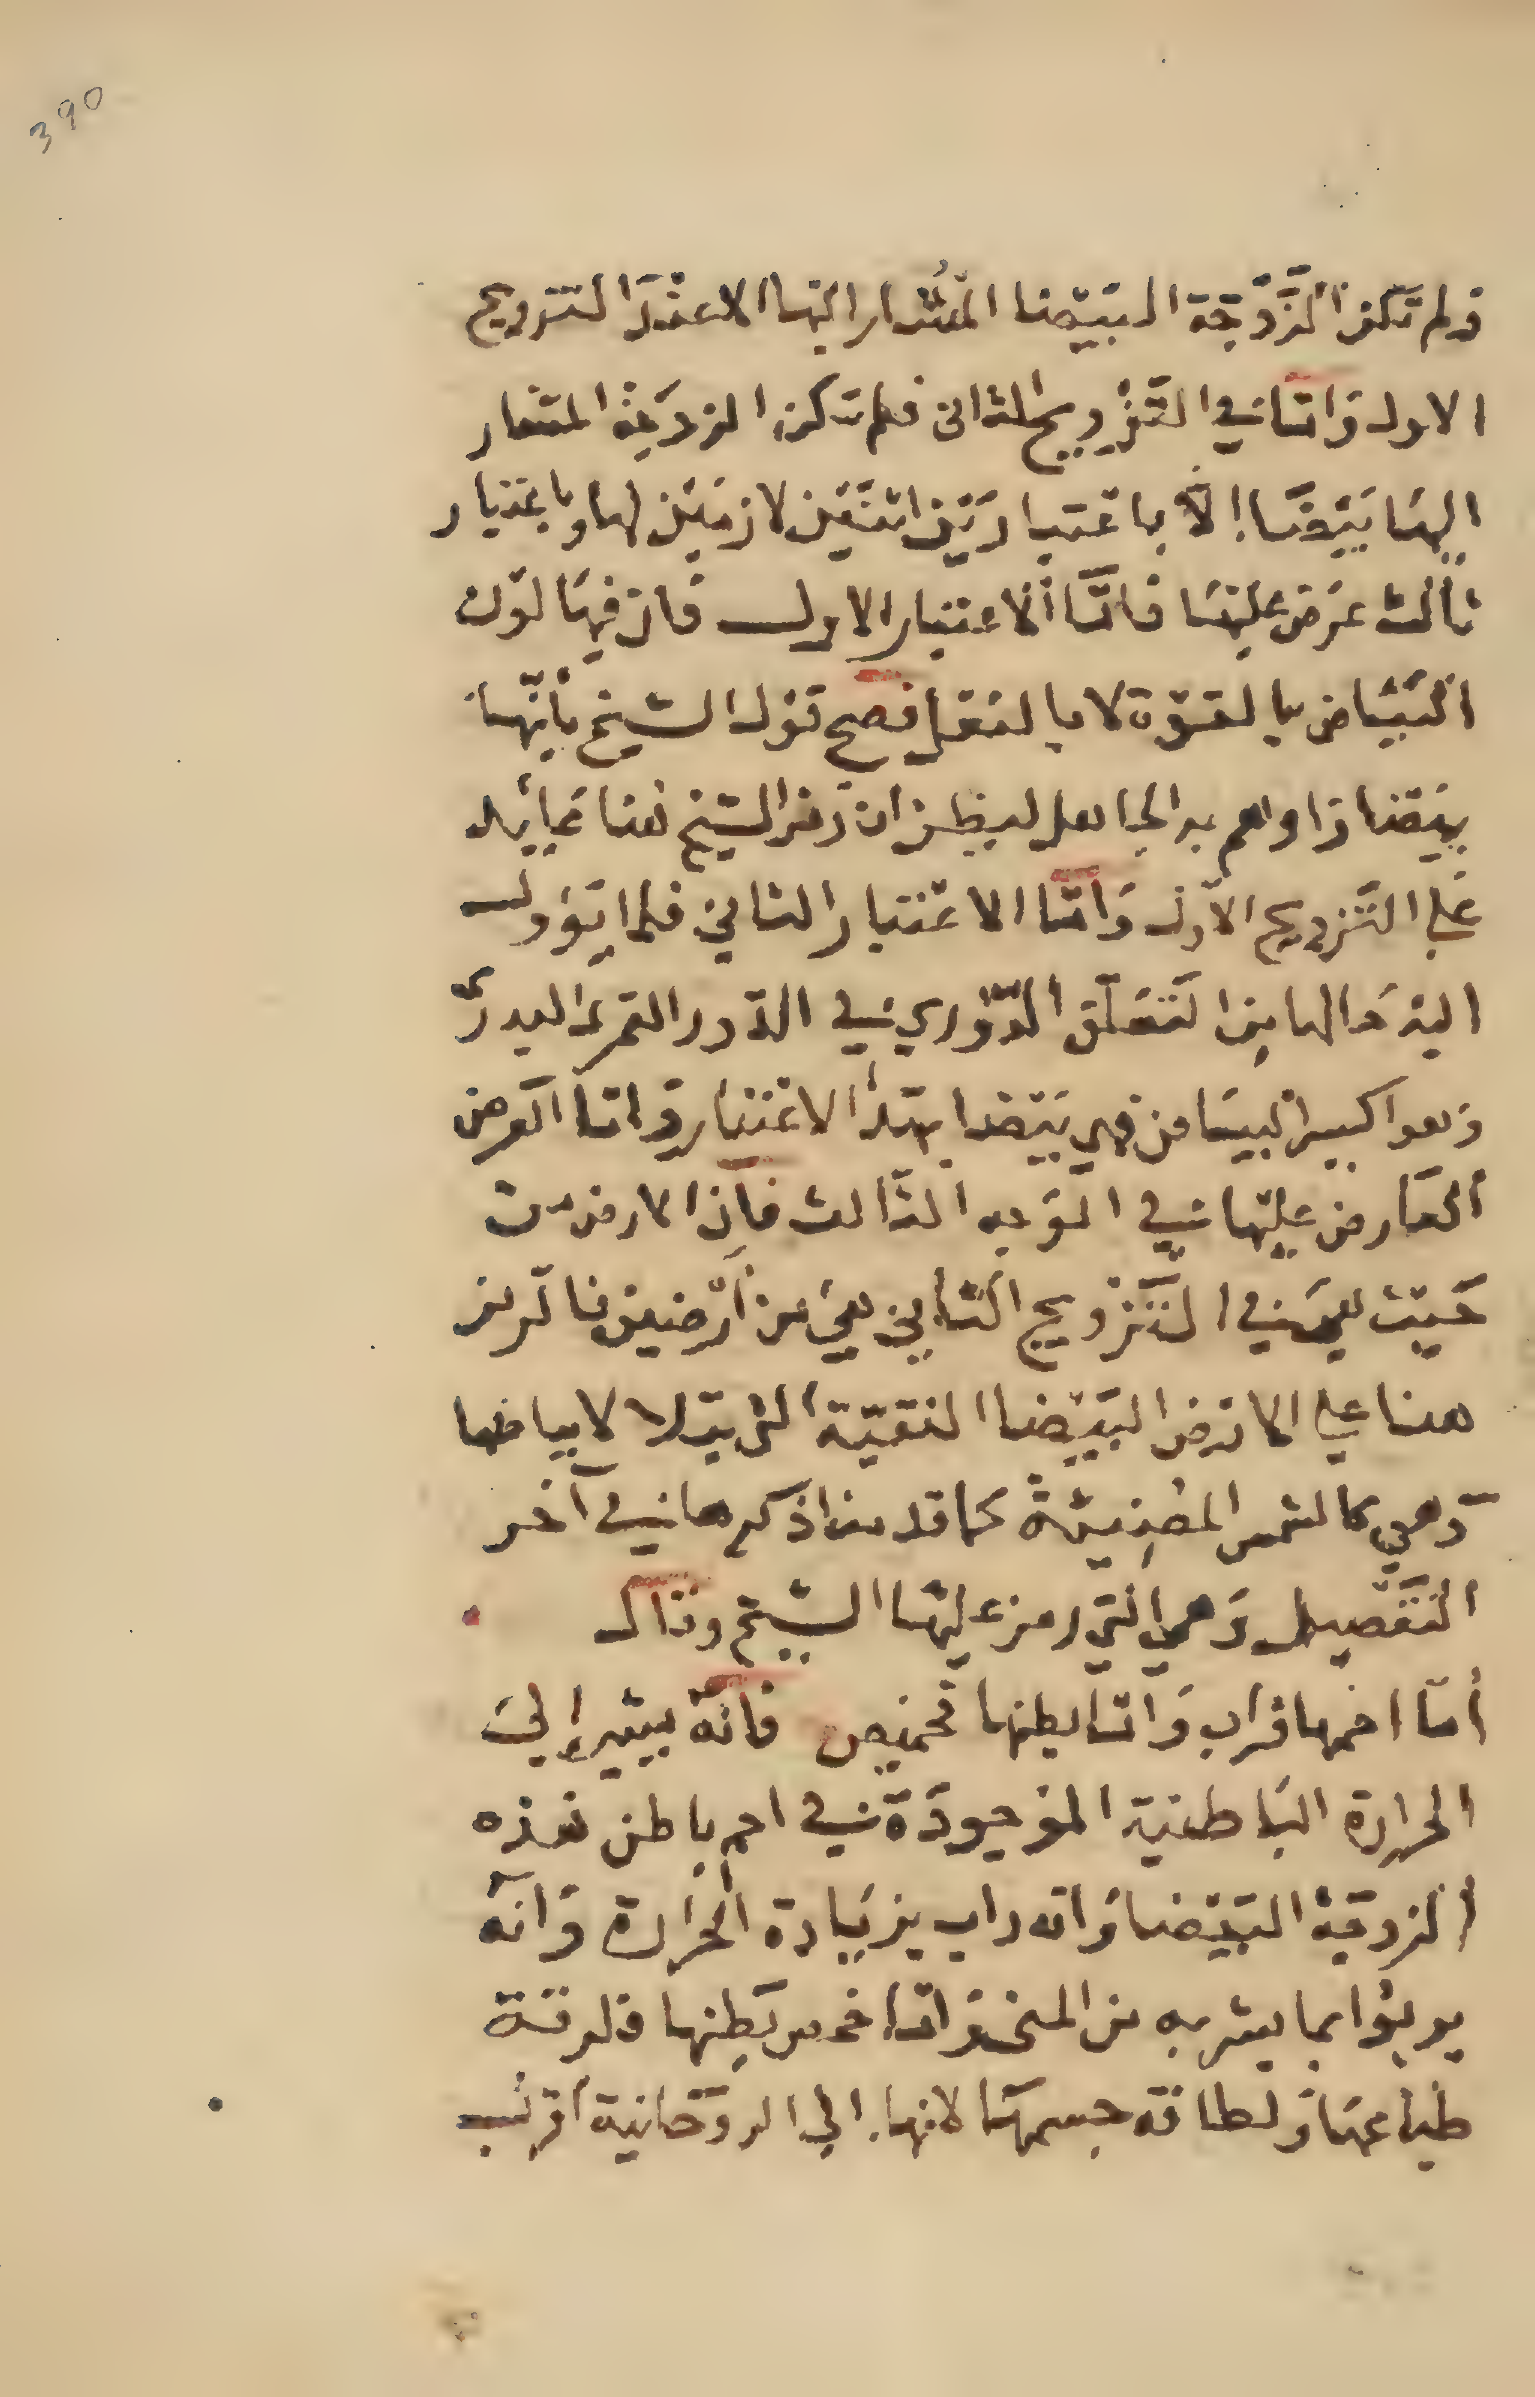 390
ولم تكن الزوجة البيضا المشار اليها الا عند التزويج
الاول واما في التزويج الثاني فلم تكن الزوجة المشار
اليها بيضا الا باعتبارين اثنين لازمين لها وباعتبار
ثالث عرض عليها فاما الاعتبار الاول فان فيها لون
البياض بالقوة لا بالفعل فصح قول الشيخ بانها
بيضا واوهم به الجاهل ليظن ان رمز الشيخ هنا عايد
علي التزويج الاول واما الاعتبار الثاني فلما يؤول
اليه حالها من التعلق الدوري في الدور القمري البدري
وهو اكسير البياض فهي بيضا بهذا الاعتبار واما العرض
العارض عليها في الوجه الثالث فان الارض من
حيث هي في التزويج الثاني هي من ارضين فالرمز
هنا علي الارض البيضا النقية لا بياضها
وهي كالشمس المضيئة كما قدمنا ذكرها في آخر
التفصيل وهي التي رمز عليها الشيخ وقال
أما فمها فراب واما بطنها فخميص فانه يشير إلي
الحرارة الباطنية الموجودة في باطن هذه
الزوجة البيضا وانه راب بزيادة الحرارة وانه
يربوا بما يشربه من المني واما خمص بطنها فلرقة
طباعها ولطافة جسمها لانها الي الروحانية أقرب